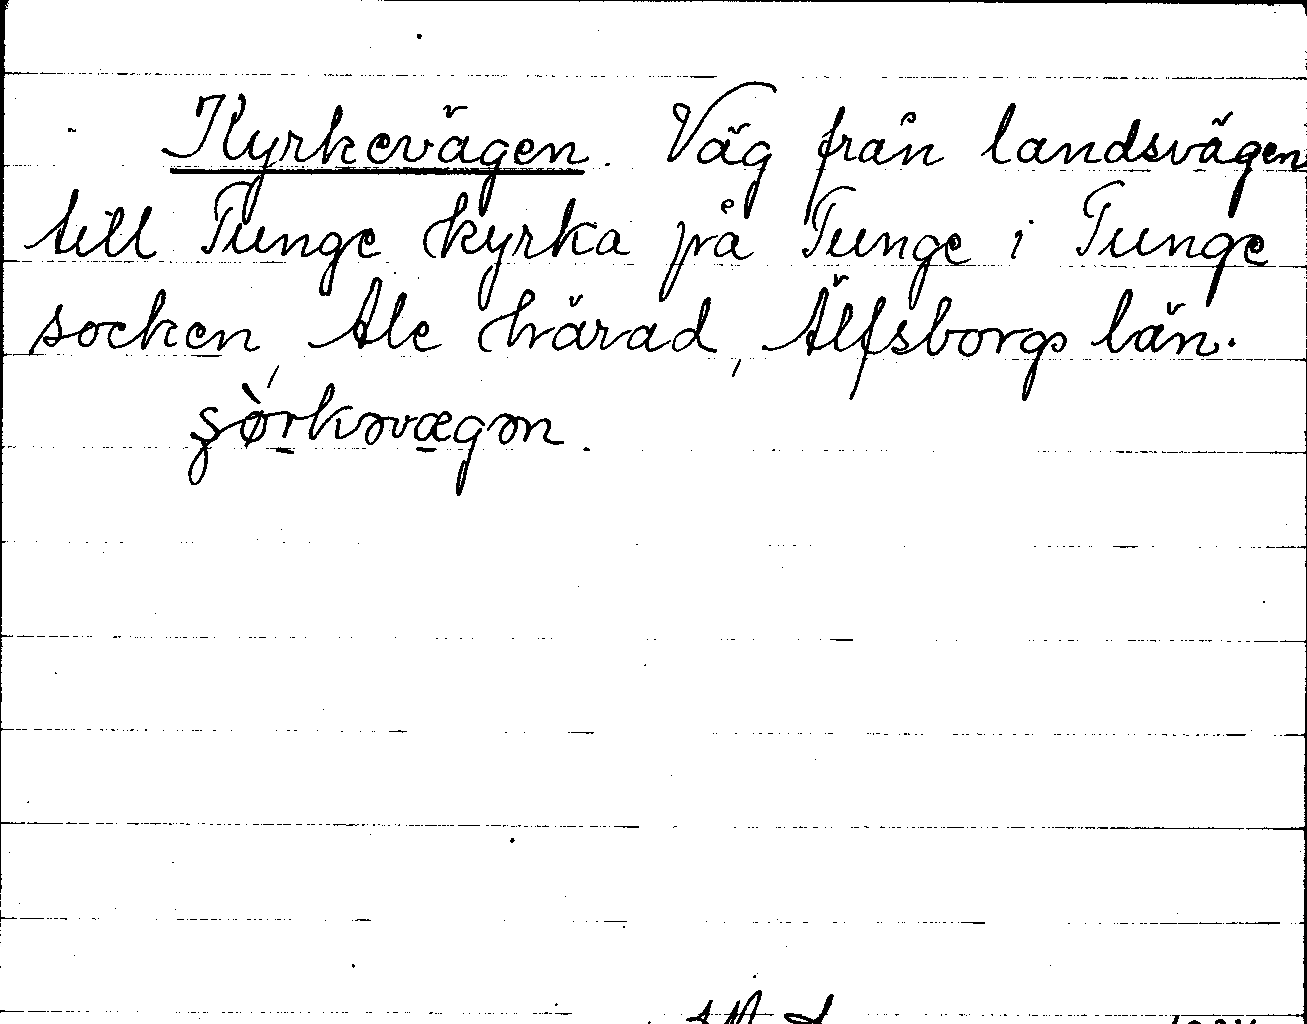 Kyrkevägen. Väg från landsvägen
till Tunge kyrka på Tunge i Tunge
socken, Ale härad, Älfsborgs län.
şø̀rkəvægən.